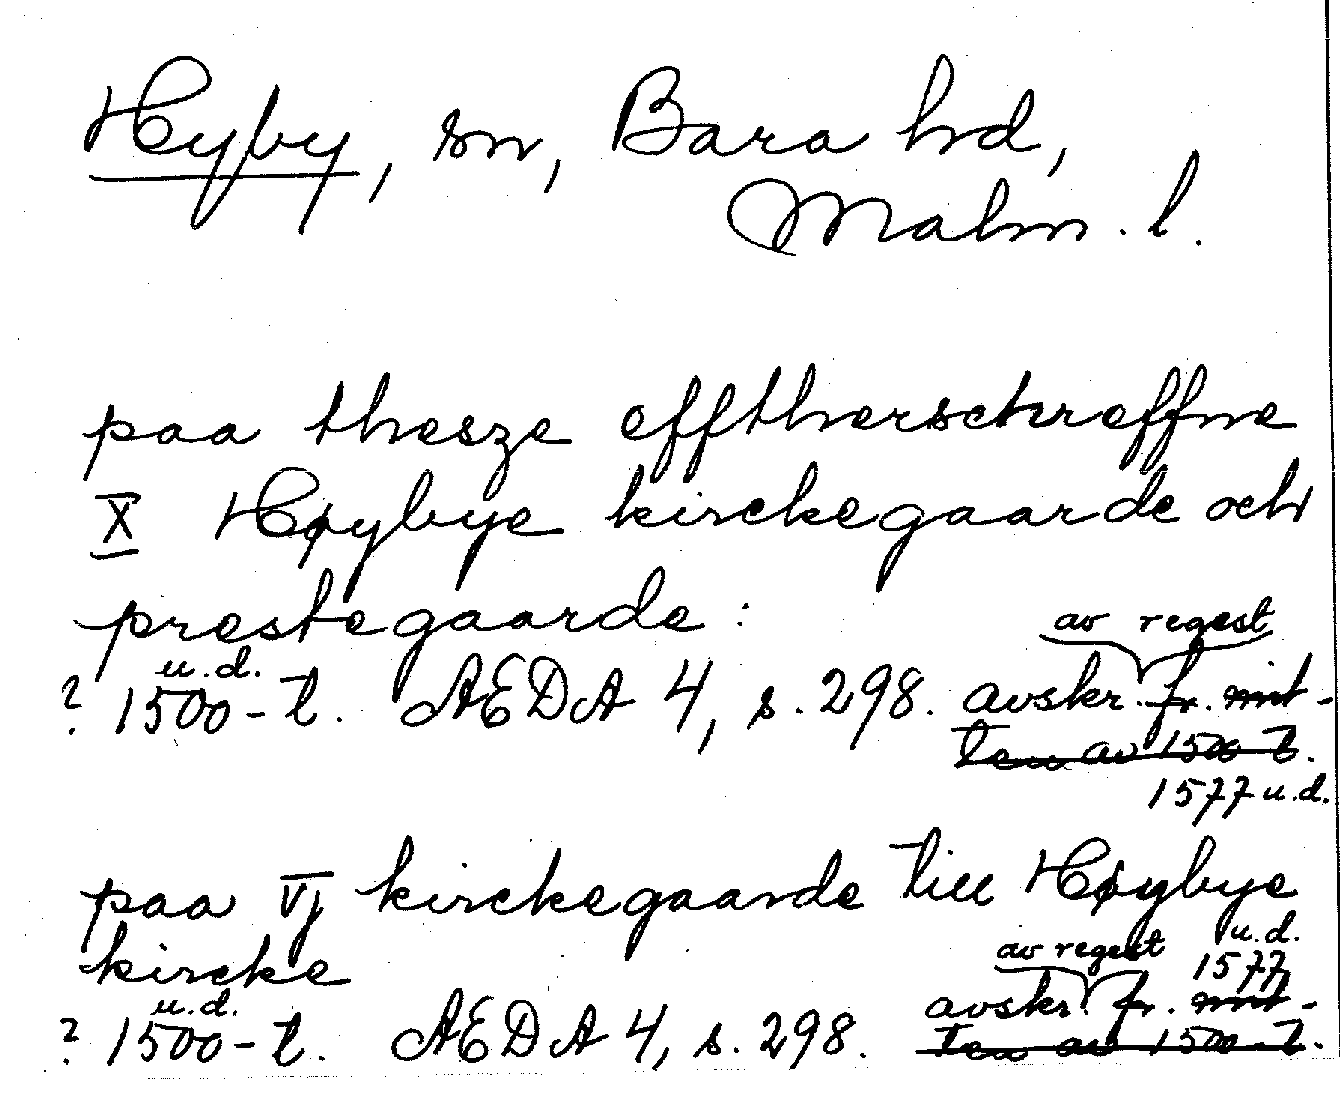 Hyby, sn, Bara hd,
Malm. l.
paa thesze efftherschreffne
X Høybye kirckegaarde och
prestegaarde :
av regest
? 1500-t. u.d. AEDA 4, s. 298. avskr. fr. mit-
ten av 1500-t.
1577 u.d.
paa vj kirckegaarde till Høybye
kircke
av regest u.d.
1577
? 1500-t. u.d. AEDA 4, s. 298. avskr. fr. mit-
ten av 1500-t.